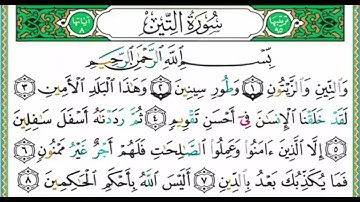 ترتيبها ٩٥
سُورَةُ التِّينِ
آياتها ٨
بِسْمِ اللَّهِ الرَّحْمَٰنِ الرَّحِيمِ
وَالتِّينِ وَالزَّيْتُونِ ١ وَطُورِ سِينِينَ ٢ وَهَٰذَا الْبَلَدِ الْأَمِينِ ٣
لَقَدْ خَلَقْنَا الْإِنسَٰنَ فِي أَحْسَنِ تَقْوِيمٍ ٤ ثُمَّ رَدَدْنَٰهُ أَسْفَلَ سَٰفِلِينَ
٥ إِلَّا الَّذِينَ ءَامَنُوا وَعَمِلُوا الصَّٰلِحَٰتِ فَلَهُمْ أَجْرٌ غَيْرُ مَمْنُونٍ ٦
فَمَا يُكَذِّبُكَ بَعْدُ بِالدِّينِ ٧ أَلَيْسَ اللَّهُ بِأَحْكَمِ الْحَٰكِمِينَ ٨